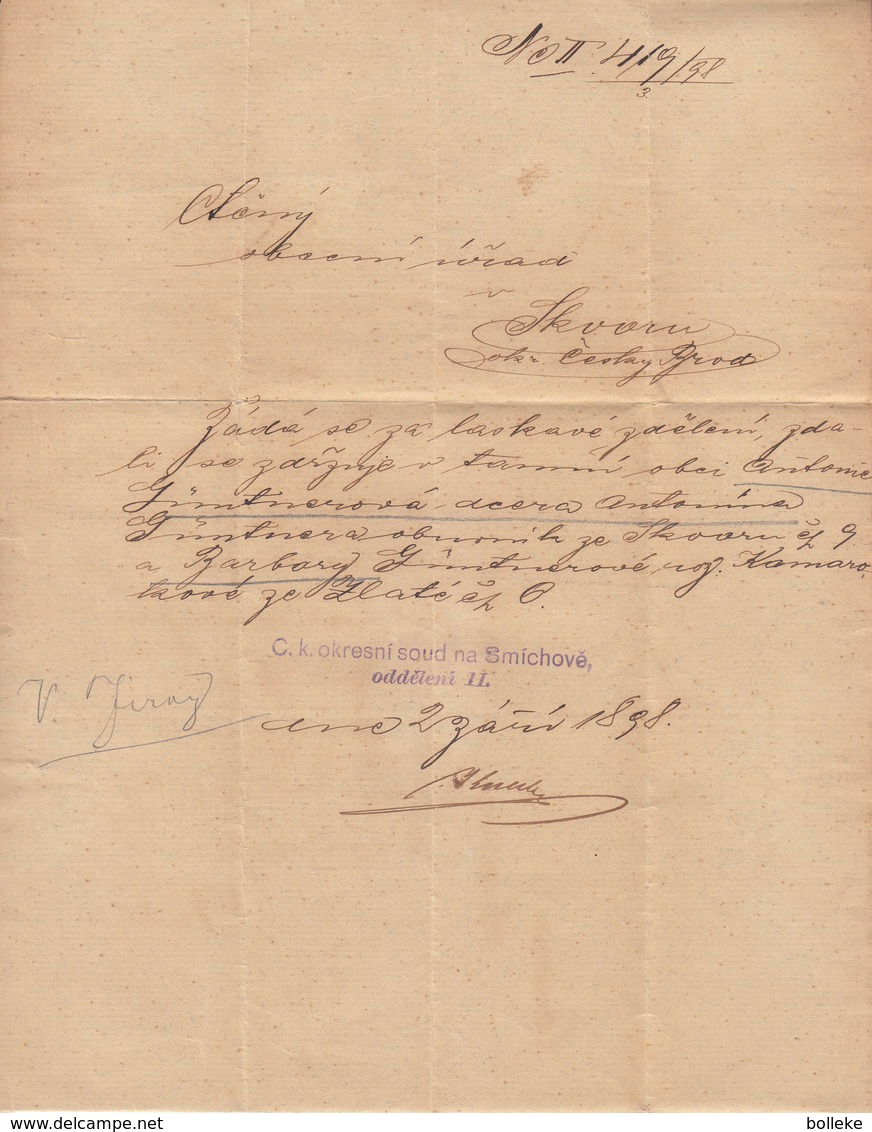 Nc II 419/98
3.
Ctěný
obecní úřad
v
Skvoru
okr. Česky Brod
Žádá se za laskavé zdělení, zda-
li se zdržuje v tamní obci Antonie
Güntnerová dcera Antonína
Güntnera obuvník ze Skvoru čp 9
a Barbory Güntnerové, roz. Kamaro-
tkové ze Zlaté čp 6.
C. k. okresní soud na Smíchově,
oddělení II.
V. Jirový
dne 2 září 1898.
bolleke